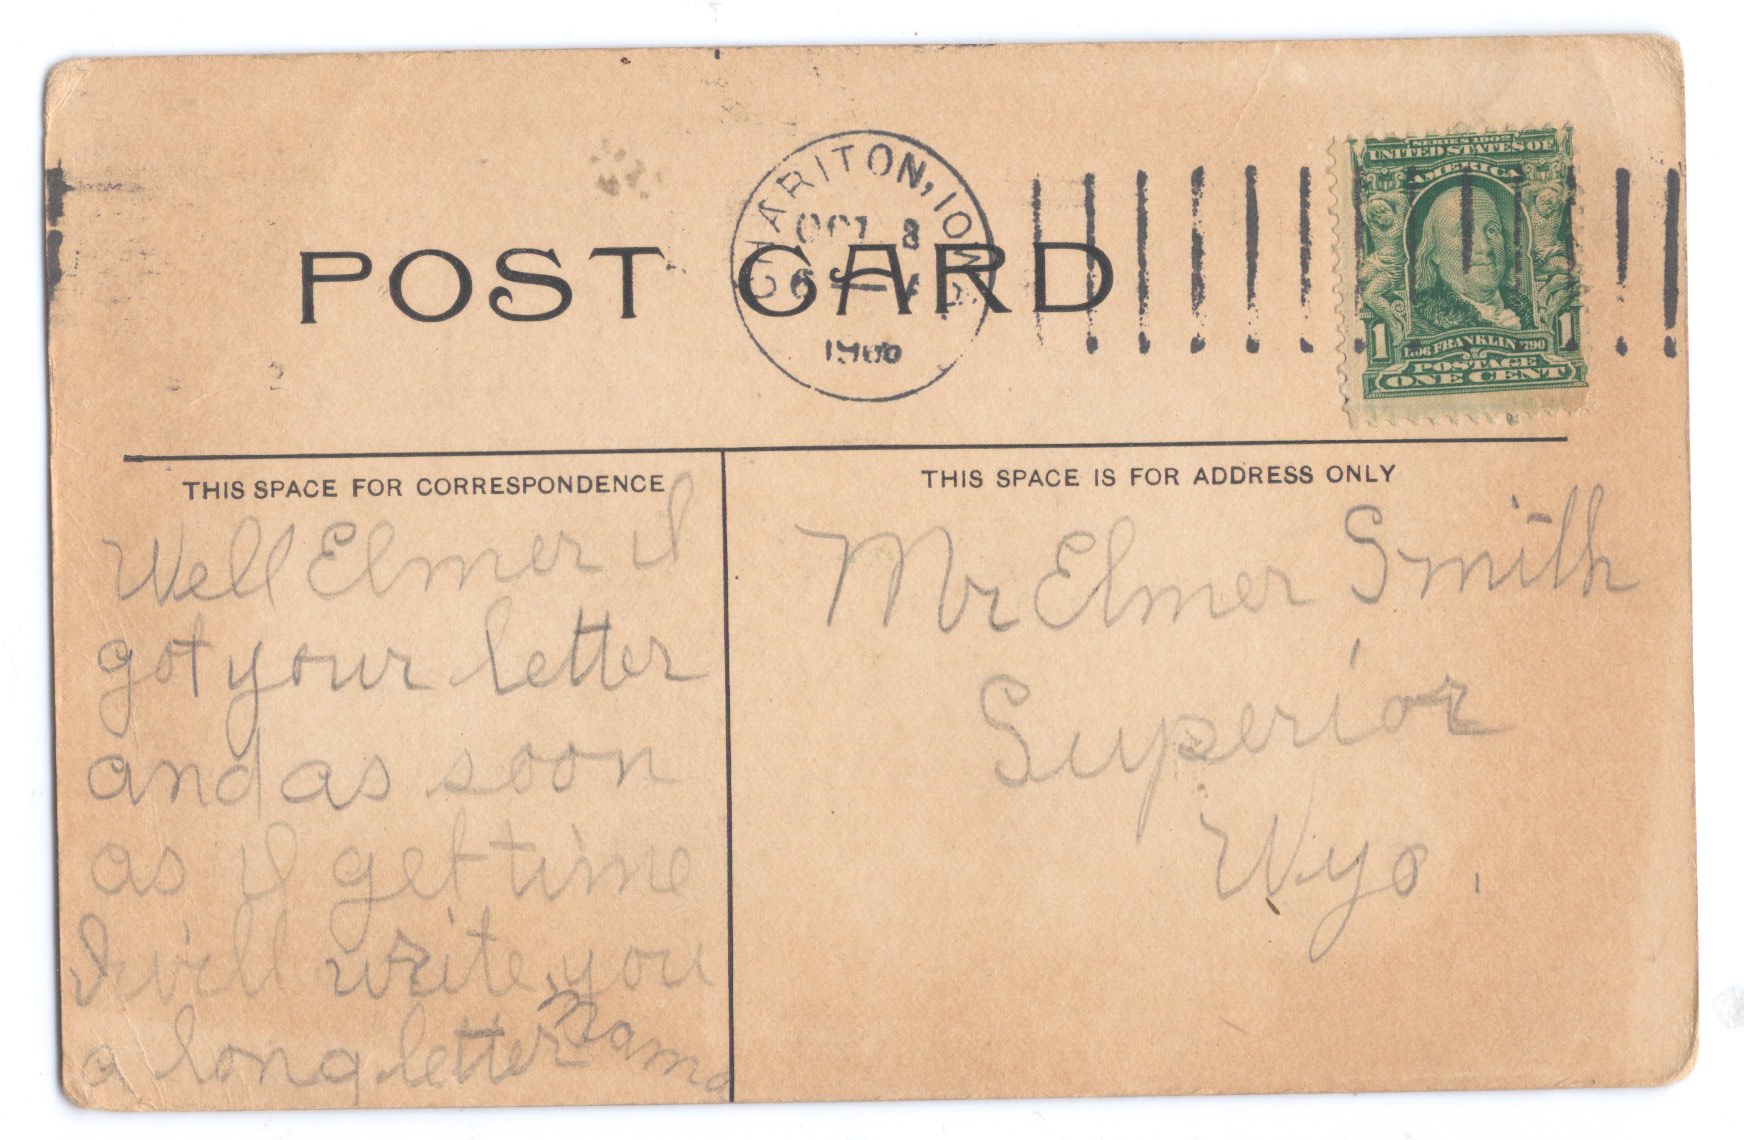 CHARITON, IOWA
OCT 8
6
190
SERIES 1902
UNITED STATES OF
AMERICA
1 1
1706 FRANKLIN 1790
POSTAGE
ONE CENT
POST CARD
THIS SPACE FOR CORRESPONDENCE
Well Elmer I
got your letter
and as soon
as I get time
I will write you
a long letter
Mama
THIS SPACE IS FOR ADDRESS ONLY
Mr Elmer Smith
Superior
Wyo.